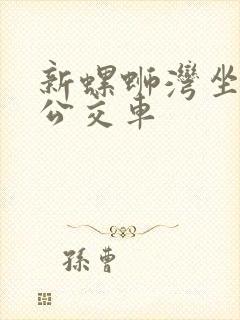 新螺蛳灣坐
公交車
孫曹